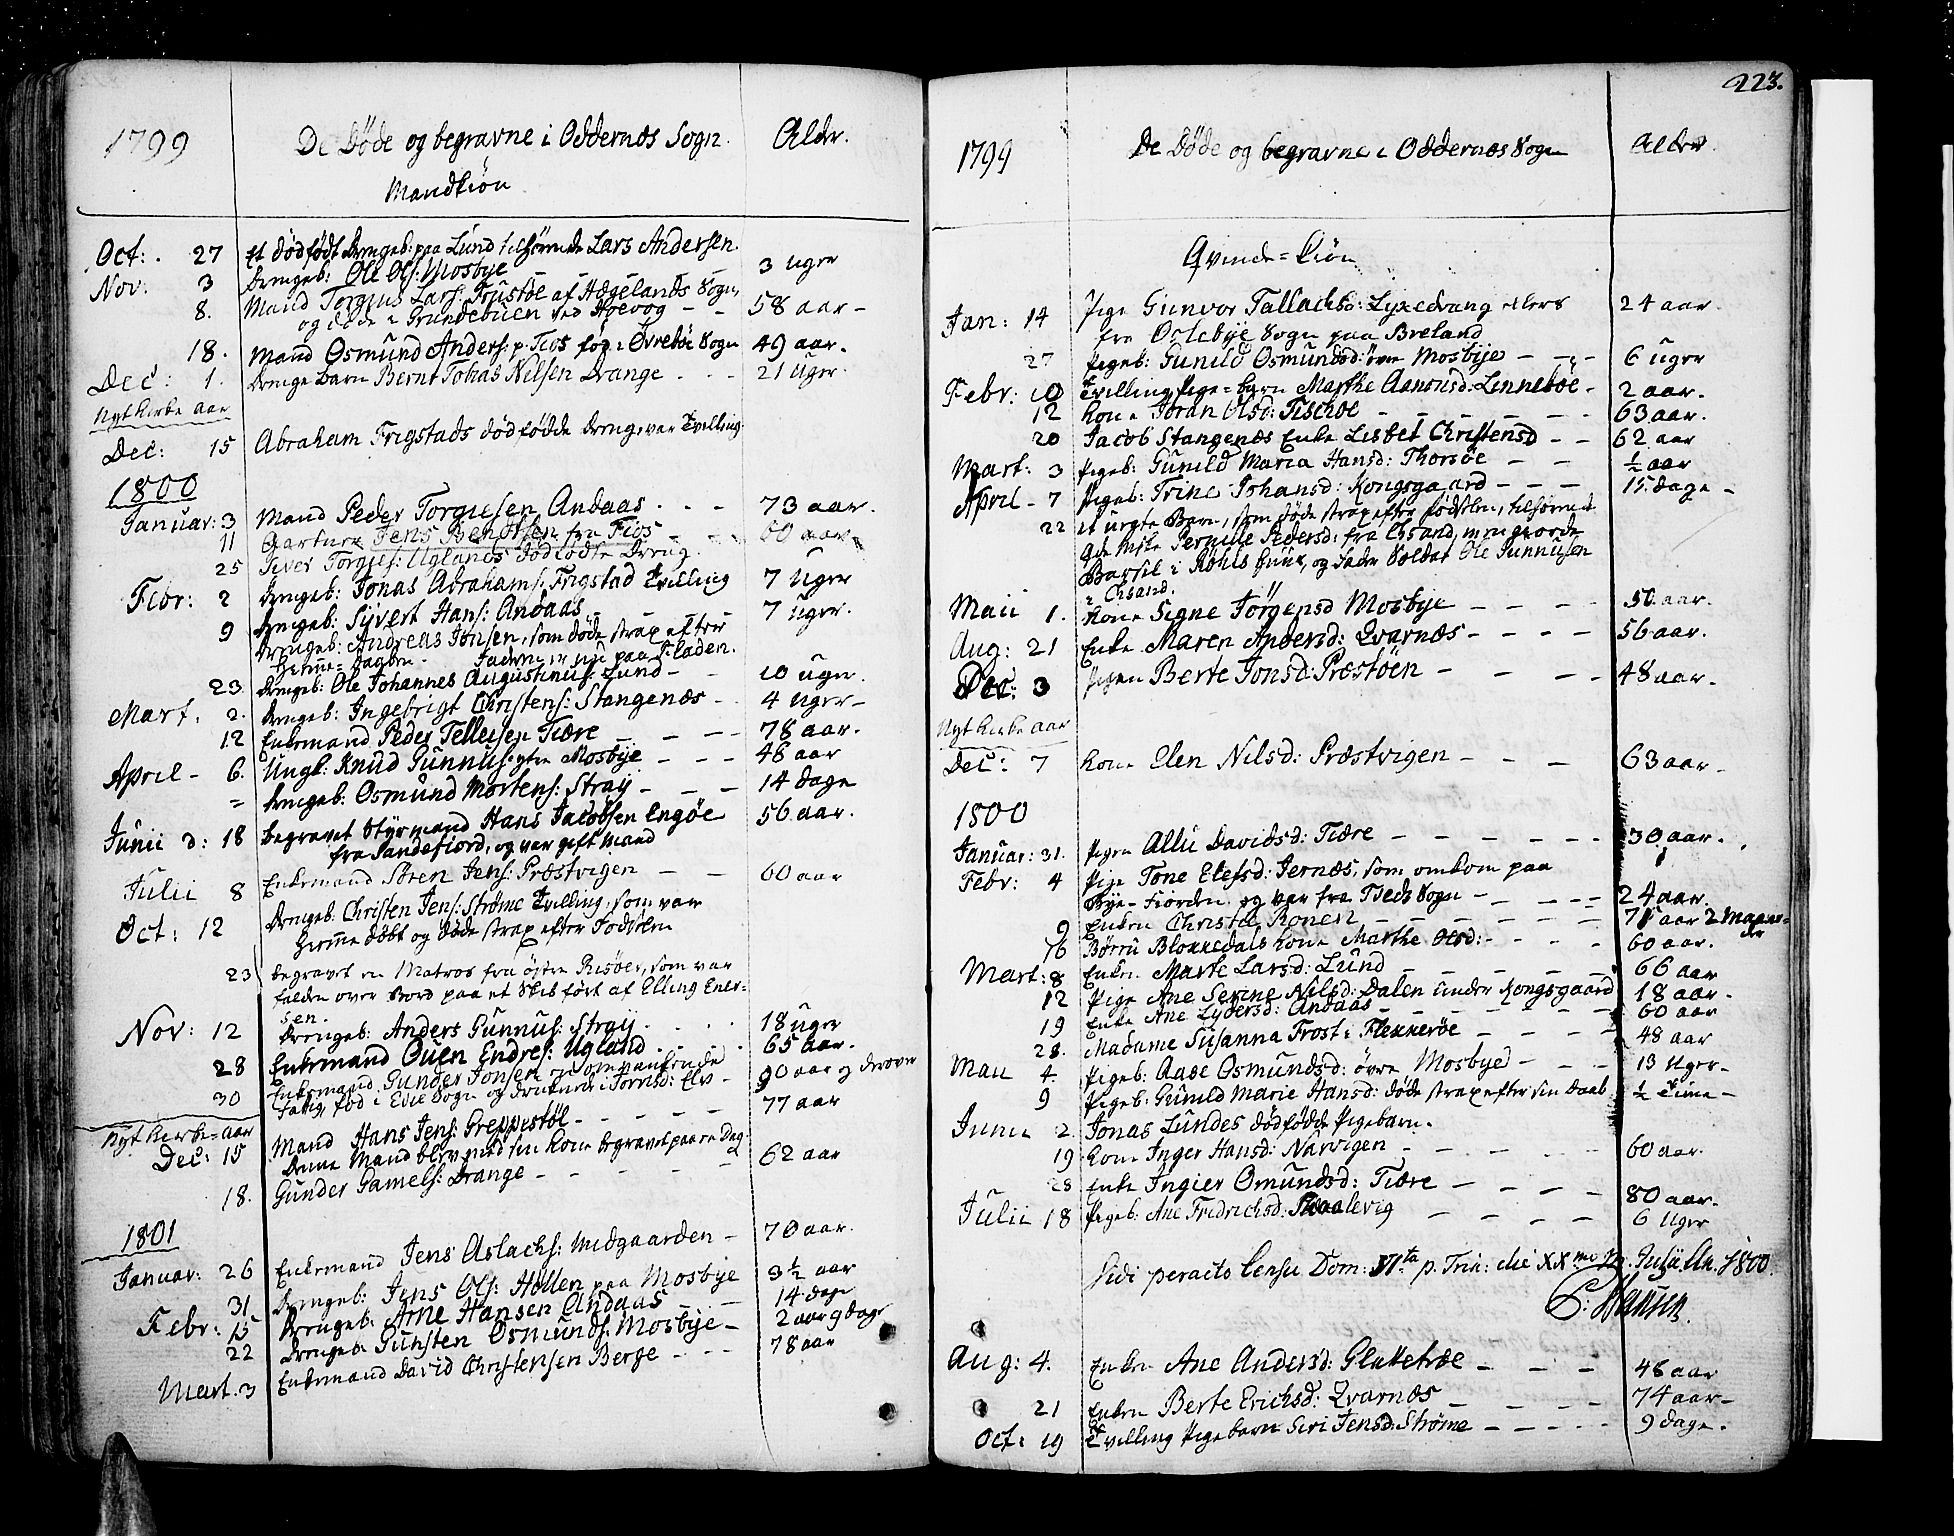 1799 De Døde og begravne i Oddernæs Sogn. Aldr.
Mandkiøn
Oct: 27 Et dødfødt Drengeb: paa Lund tilhørende Lars Andersen.
Nov: 3 Drengeb: Ole Ols: Mosbye 3 Uger
8. Mand Torgius Lars: af Hægelands Sogn,
og døde i ved Høevog - - 58 aar -
18. Mand Osmund Anders: p: Fios sog: Øvrebøe Sogn 49 aar.
Dec: 1. Drenge barn Bernt Tobias Nilsen Drange - - - 21 Uger.
Nyt Kirke Aar
Dec: 15 Abraham Frigstads dødfødde Dreng, var Tvilling.
1800
Januar: 3 Mand Peder Torgiesen Andaas - - - 73 aar.
11 Jens Bentsen fra Fios - - - 60 aar
25 Siver Torgus: Uglands dødfødte Dreng.
Febr: 2 Drengeb: Jonas Abrahams: Frigstad Tvilling 7 Uger
9 Drengeb: Sÿvert Hans: Andaas - - - 7 Uger.
Drengeb: Andreas Jonsen, som døde strax efter
Hjemme-Daaben. Faderen er nu paa Fladen.
23 Drengeb: Ole Johannes Augustinus: Lund - - 10 uger.
Mart. 2. Drengeb: Ingebrigt Christens: Stangenæs - - 4 Uger -
12 Enkemand Peder Tellefsen Tiære - - - 78 aar.
April - 6. Ungk: Knud Gunnus: ytre Mosbÿe - - - 46 aar
= Drengeb: Osmund Mortens: Straÿ - - - 14 Dage
Junii d: 18 begravet Styrmand Hans Jacobsen Engøe 56 aar.
fra Sandefiord, og var gift Mand
Julii 8 Enkemand Søren Jens: Præstvigen - - 60 aar
Oct: 12 Drengeb: Christen Jens: Strøme Tvilling, som var
hjemme døbt og døde strax efter Fødselen
23 begravet en Matros fra øster Risøer, som var
falden over Bord paa et Skib ført af Elling Ener-
sen.
Nov: 12 Drengeb: Anders Gunnus: Straÿ - - - 18 uger
28 Enkemand Ouen Endres: Ugland - - - 65 aar.
30 Enkemand Gunder Jonsen, 90 aar og derover
fattig, fød i Evie Sogn og i Torrisd: Elv -
Nyt Kirke-aar 77 aar
Dec: 15 Mand Hans Jens: Greppestøl - - - -
Denne Mand blev med sin Kone begravet paa en Dag
18. Gunder Gamels: Drange - - - - 62 aar
1801
Januar: 26 Enkemand Jens Aslachs: Midgaarden - 70 aar.
31 Drengeb: Jens Ols: Hollen paa Mosbye 3½ aar
Febr: 15 Drengeb: Arne Hansen Andaas - - 14 dage
22 Drengeb: Gunsten Osmunds: Mosbÿe - 2 aar 9 dage
Mart. 3 Enkemand David Christensen Berge - - - 78 aar
223.
1799 De Døde og begravne i Oddernæs Sogn Aldr.
Qvinde-Kiøn
Jan: 14 Pige Gunvor Tallachsd: ellers 24 aar.
fra Sogn paa Breland
27 Pigeb: Gunild Osmundsd: øvre Mosbÿe - - - 6 Uger
Febr: 10 Tvilling Pige-barn Marthe Aanonsd: Linnebøe - 2 aar.
12 Kone Jøran Olsd: - - - - 63 aar.
20 Jacob Stangenæs Enke Lisbet Christensd - - 62 aar
Mart: 3 Pigeb: Gunild Maria Hansd: Thorsøe - - ½ aar
April - 7 Pigeb: Trine Johansd: Kongsgaard - - - 15. dage -
22 et uægte Barn, som døde strax efter Fødselen, tilhørende
Pernille Pedersd: fra Chsand, men giorde
Barsel i Kohls Huus, og Fader Soldat Ole Gunnusen
i Chsand.
Maii 1. Kone Signe Jørgensd Mosbÿe - - - - 50 aar.
Aug: 21 Enke Maren Andersd: Qvarnæs - - - - 56 aar.
Dec: 3 Pigen Berte Jonsd: Præstøen - - - - 48 aar.
Nyt Kirke aar
Dec: 7 Kone Elen Nilsd: Præstvigen - - - 63 aar -
1800
Januar: 31. Pigen Allii Davidsd: Tiære - - - - - 30 aar.
Febr: 4 Pige Tone Elefsd: Jernæs, som omkom paa
Bÿe-Fiorden og var fra Tveds Sogn - - - - 24 aar.
9 Enken Christie Ronen - - - - - - 71 aar 2 Maane-
der
16 Børru Blokkedals Kone Marthe Olsd: - - - - 60 aar.
Mart: 8 Enken Marte Larsd: Lund - - - - - 66 aar
12 Pige Ane Serine Nilsd: Dalen under Kongsgaard 18 aar.
19 Enke Ane Lydersd: Andaas - - - - - - 60 aar
28. Madame Susanna Frost i Flekkerøe - - - - 48 aar
Maii 4. Pigeb: Aase Osmundsd: øvre Mosbye - - - 13 Uger -
9 Pigeb: Gunild Marie Hansd: døde strax efter sin daab. ½ Time -
Junii 2. Jonas Lundes dødfødde Pigebarn.
19 Kone Inger Hansd: Narvigen - - - - - 60 aar.
28 Enke Ingier Omundsd: Tiære - - - - 80 aar.
Julii 18 Pigeb: Ane Fridrichsd: - - - - 6 Uger
Vidi peracto Censu Dom: VIta p. Trin: die XXmo m. Julii An. 1800.
P: Hansen.
Aug: 4. Enken Ane Andersd: Glattetræ - - - 48 aar
21 Enken Berte Erichsd: Qvarnæs - - - 74 aar -
Oct: 19 Tvilling Pigebarn Siri Jensd: Strøme - - - - 9 dage.